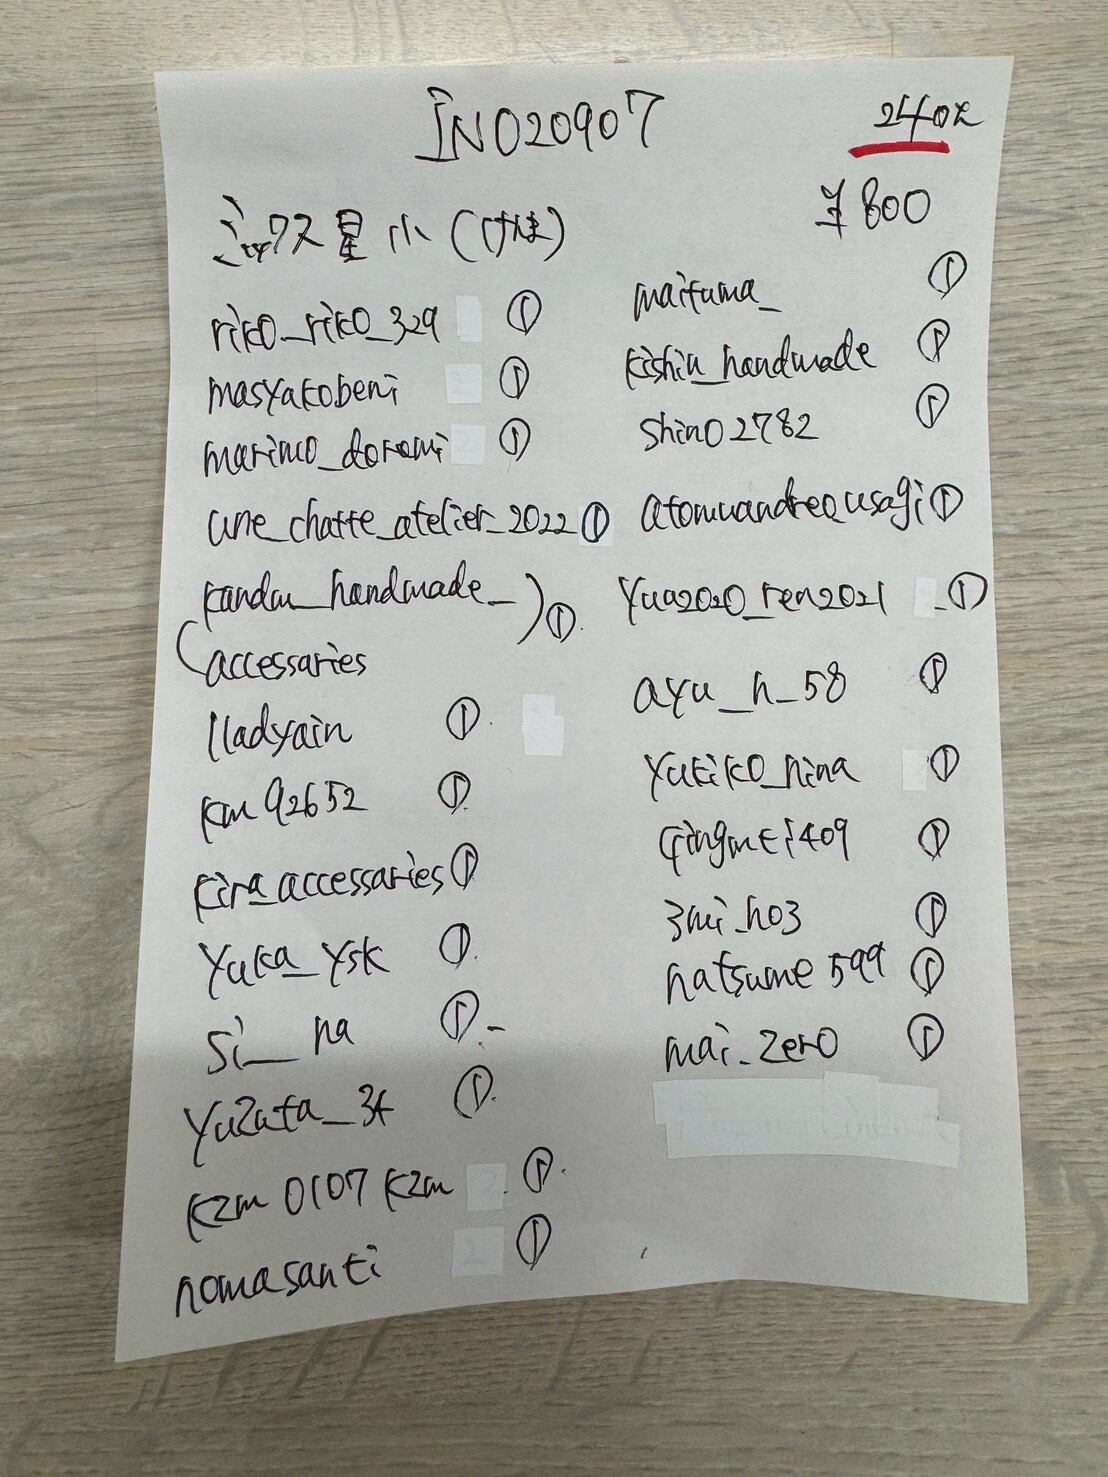 INO20907
240pc
ミックス星小(1け様)
¥800
riko_riko_329 ①
masyakobeni ①
marimo_doremi ①
une_chatte_atelier_2022 ①
kandm_handmade_
accessaries ①
lladyain ①
km92652 ①
kira_accessaries ①
yuka_ysk ①
si__na ①
yuzuta_34 ①
kzm0107kzm ①
nomasanti ①
maituma_ ①
kishin_handmade ①
shino2782 ①
atomuandreausagi ①
yua2020_ren2021 ①
ayu_h_58 ①
yukiko_nina ①
qingmei409 ①
3mi_ho3 ①
natsume599 ①
mai_zero ①